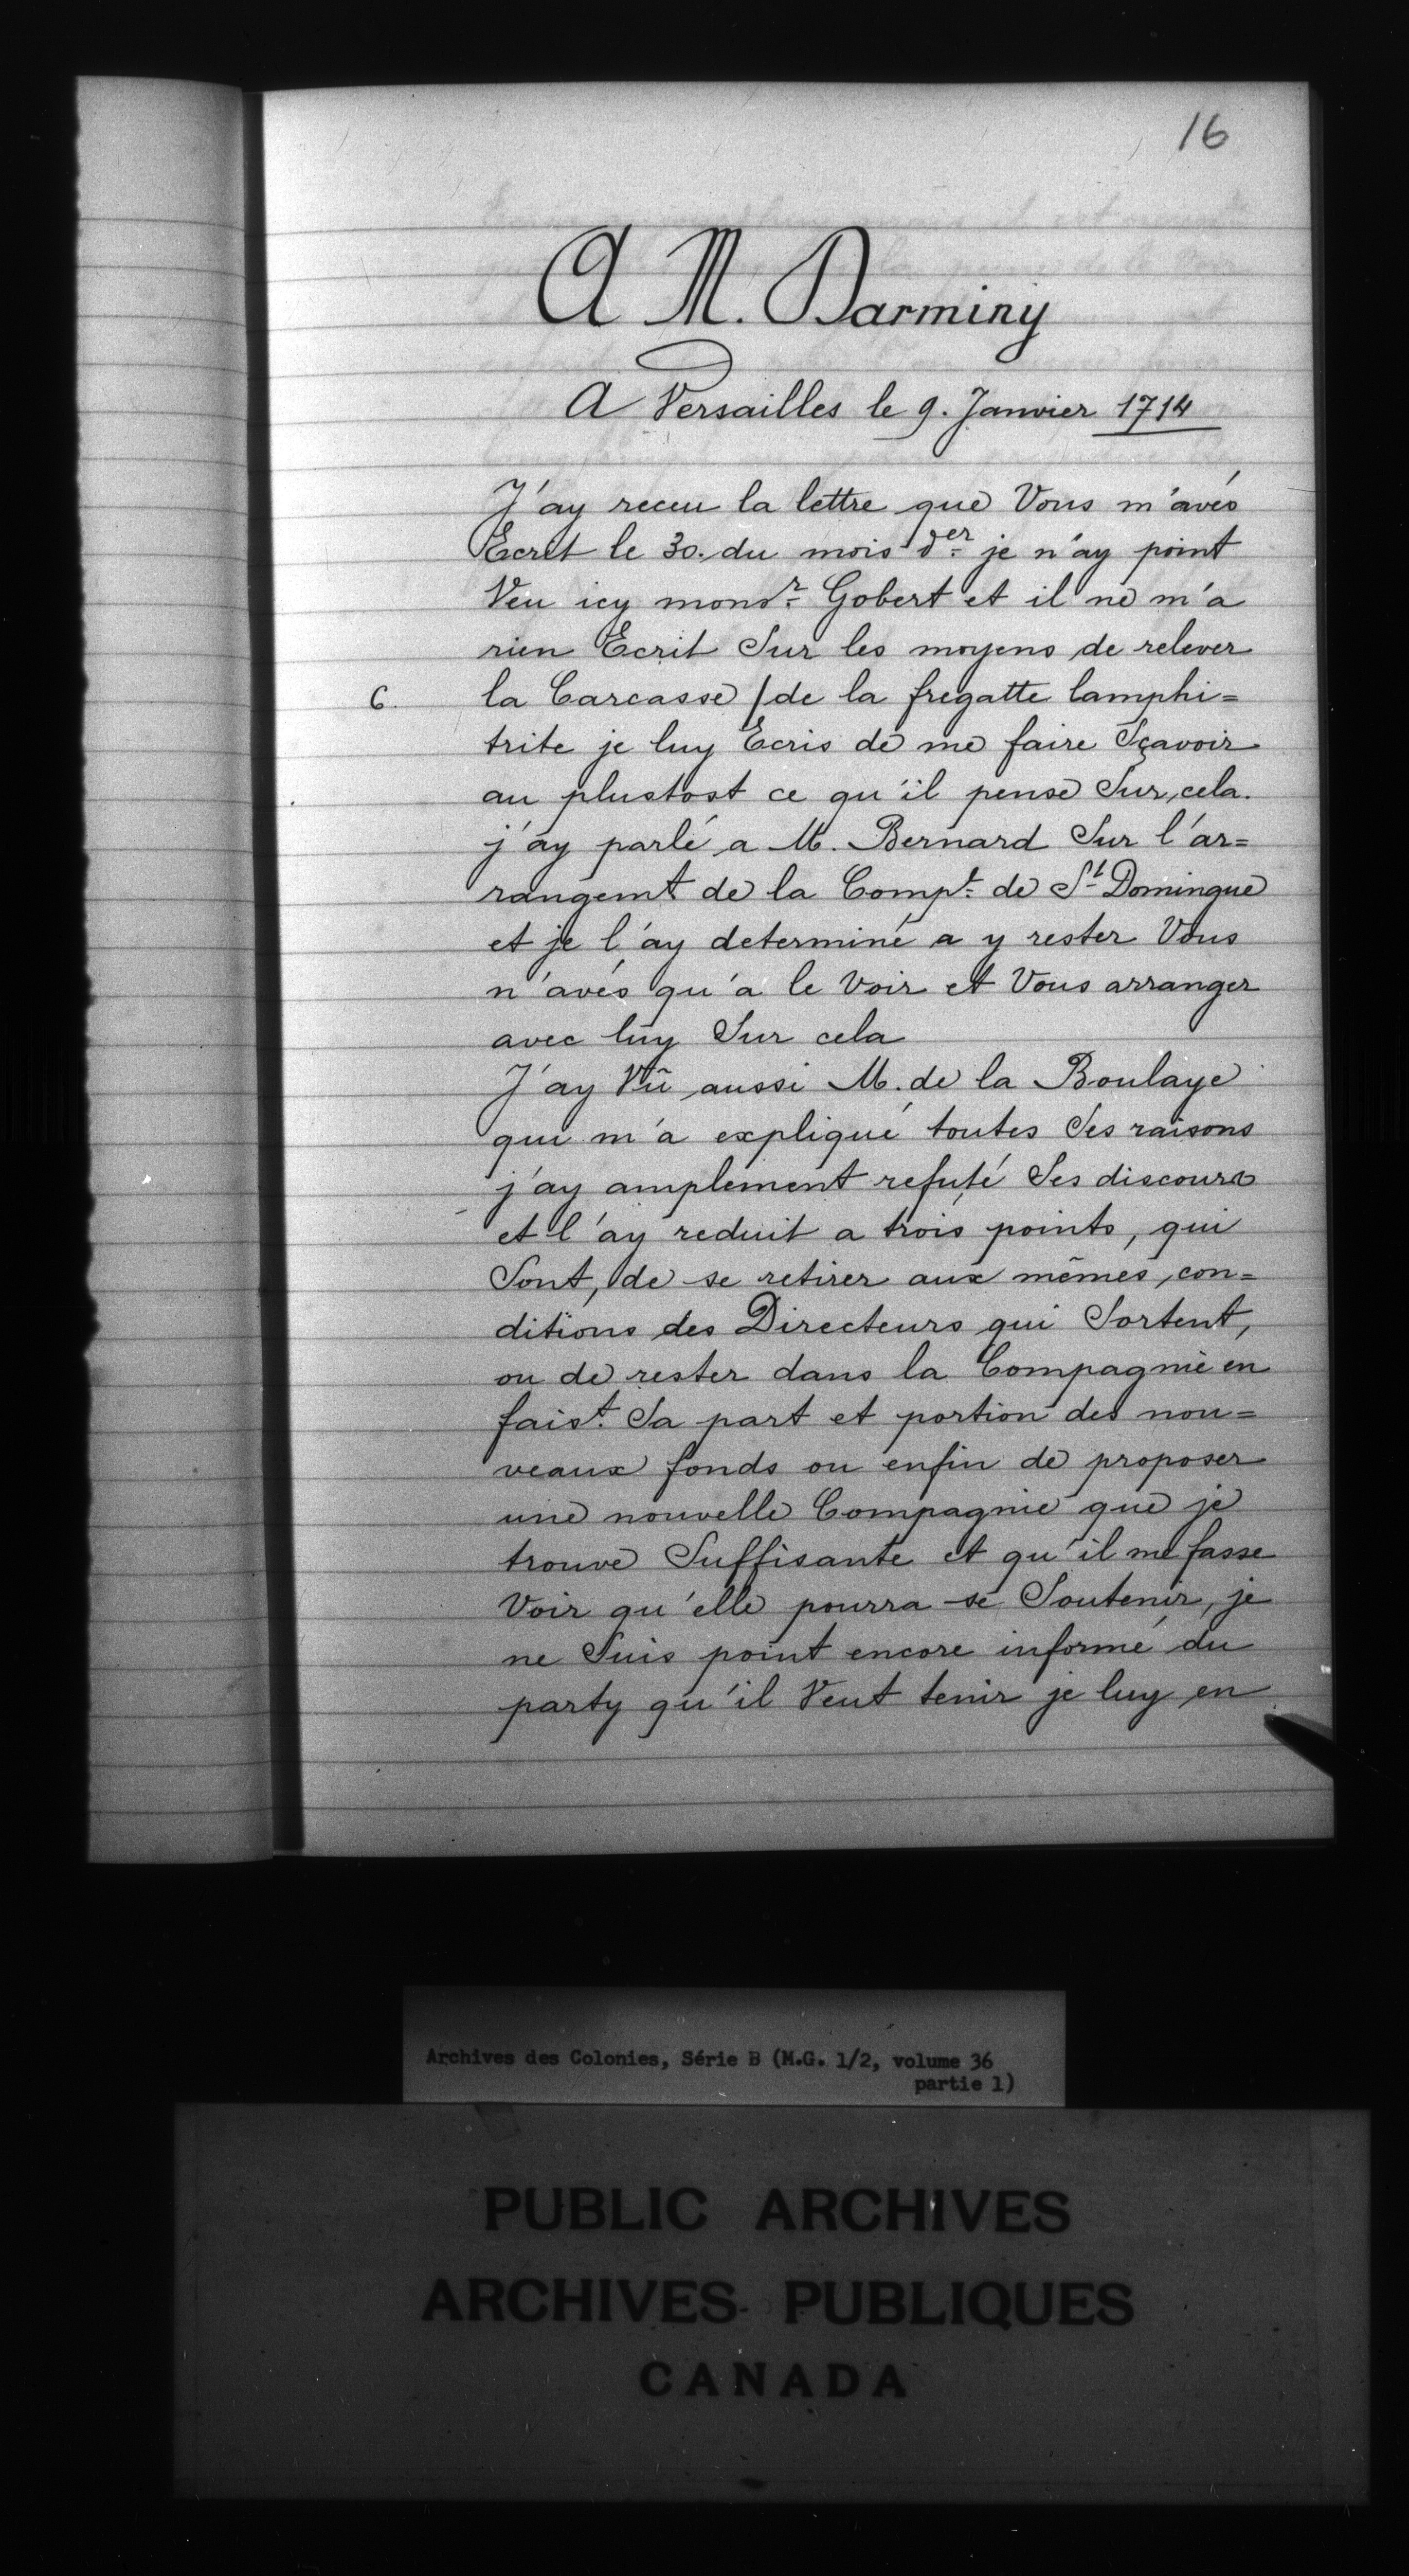 16
A M. Darminy
A Versailles le 9. Janvier 1714
J'ay receu la lettre que Vous m'avés
Ecrit le 30. du mois der je n'ay point
Veu icy monsr Gobert et il ne m'a
rien Ecrit Sur les moyens de relever
6. la Carcasse / de la fregatte lamphi=
trite je luy Ecris de me faire Sçavoir
au plustost ce qu'il pense Sur cela.
j'ay parlé a M. Bernard Sur l'ar=
rangemt de la Compe de St Domingue
et je l'ay determiné a y rester Vous
n'avés qu'a le Voir et Vous arranger
avec luy Sur cela
J'ay Vû aussi M. de la Boulaye
qui m'a expliqué toutes Ses raisons
j'ay amplement refuté Ses discours
et l'ay reduit a trois points, qui
Sont, de se retirer aux mêmes con=
ditions des Directeurs qui Sortent,
ou de rester dans la Compagnie en
faist. Sa part et portion des nou=
veaux fonds ou enfin de proposer
une nouvelle Compagnie que je
trouve Suffisante et qu'il me fasse
Voir qu'elle pourra se Soutenir, je
ne Suis point encore informé du
party qu'il Veut tenir je luy en
Archives des Colonies, Série B (M.G. 1/2, volume 36
partie 1)
PUBLIC ARCHIVES
ARCHIVES PUBLIQUES
CANADA